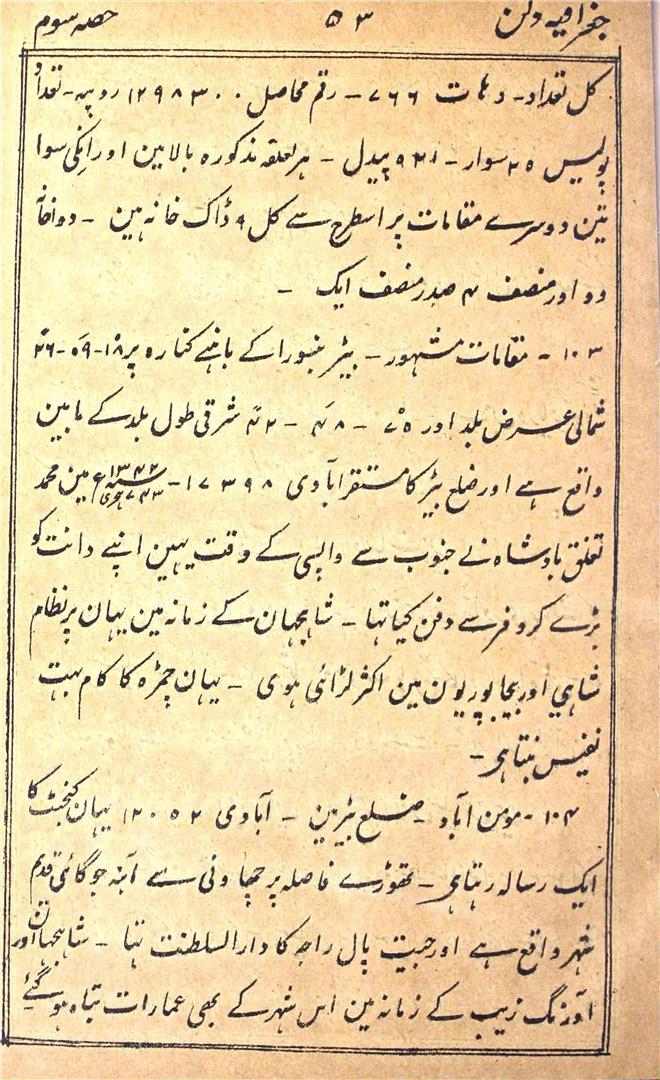 جغرافیہ دکن ۵۳ حصہ سوم
کل تعداد۔ دہات ۷۶۶ ۔ رقم محاصل ۱۲۹۸۳۰۰ روپیہ۔ تعداد
پولیس ۲۵ سوار۔ ۹۲۱ پیدل ۔ ہر تعلقہ مذکورہ بالا مین اور انکی سوا
تین دوسرے مقامات پر اسطرح سے کل ۹ ڈاک خانہ ہین ۔ دواخانہ
دو اور منصف ۴ صدر منصف ایک ۔
۱۰۳ ۔ مقامات مشہور۔ بیڑ کے بائین کنارہ پر ۱۸ْ-۵۹-۲۶
شمالی عرض بلد اور ۷۵ْ ۔ ۴۸ ۔ ۴۲ شرقی طول بلد کے مابین
واقع ہے اور ضلع بیڑ کا مستقر آبادی ۱۷۳۹۸ ۔ ۱۳۴۲ع ۷۴۳ہجری مین محمد
تغلق بادشاہ نے جنوب سے واپسی کے وقت یہین اپنے دانت کو
بڑے کروفر سے دفن کیا تہا ۔ شاہجہان کے زمانہ مین یہان پر نظام
شاہی اور بیجاپوریون مین اکثر لڑائی ہوی ۔ یہان چمڑہ کا کام بہت
نفیس بنتا ہی۔
۱۰۴ ۔ مومن آباد ۔ ضلع بیڑ مین ۔ آبادی ۱۲۰۵۲ یہان کنٹجنٹ کا
ایک رسالہ رہتا ہی ۔ تھوڑے فاصلہ پر چھاونی سے آنبہ جوگائی قدیم
شہر واقع ہے اور جیت پال راجہ کا دارالسلطنت تہا ۔ شاہجہان اور
اورنگ زیب کے زمانہ مین اس شہر کے بھی عمارات تباہ ہو گئے